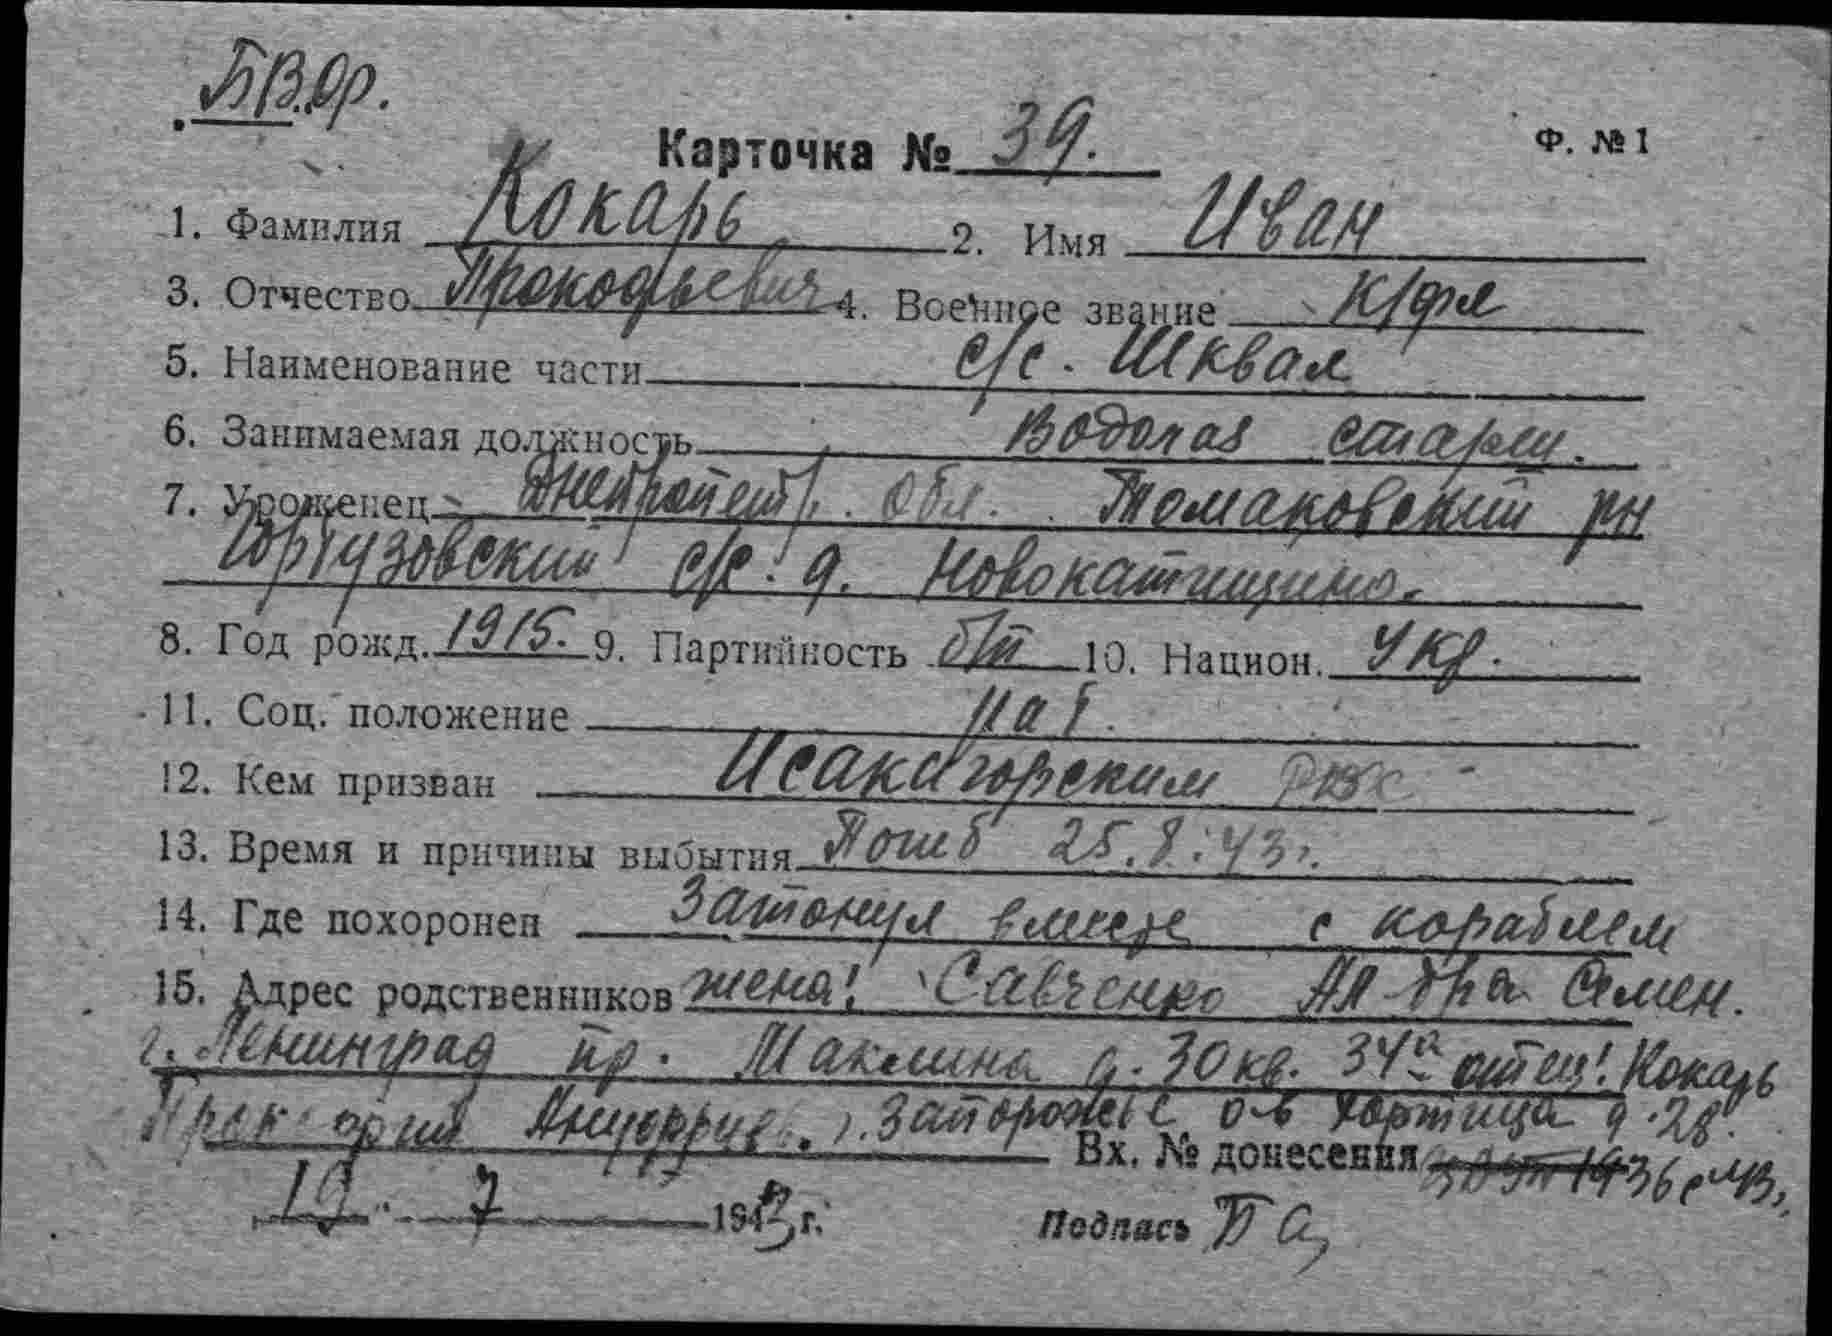 БВ.Ор.
Карточка № 39. Ф. № 1
1. Фамилия Кокарь 2. Имя Иван
3. Отчество Прокофьевич 4. Военное звание К/фл
5. Наименование части с/с. Шквал
6. Занимаемая должность Водолаз старш.
7. Уроженец Днепропетр. обл. Томаковский рн
с/с. д. Новокатищино.
8. Год рожд. 1915. 9. Партийность б/п 10. Национ. Укр.
11. Соц. положение раб.
12. Кем призван Исакагорским РВК
13. Время и причины выбытия Погиб 25.8.43г.
14. Где похоронен Затонул вместе с кораблем
15. Адрес родственников жена: Савченко Ал-дра Семен.
г. Ленинград пр. Маклина д. 30 кв. 34а отец: Кокарь
г. Запорожье о-в Хортица д. 28.
Вх. № донесения 36 с
19 " 7 1943 г. Подпись